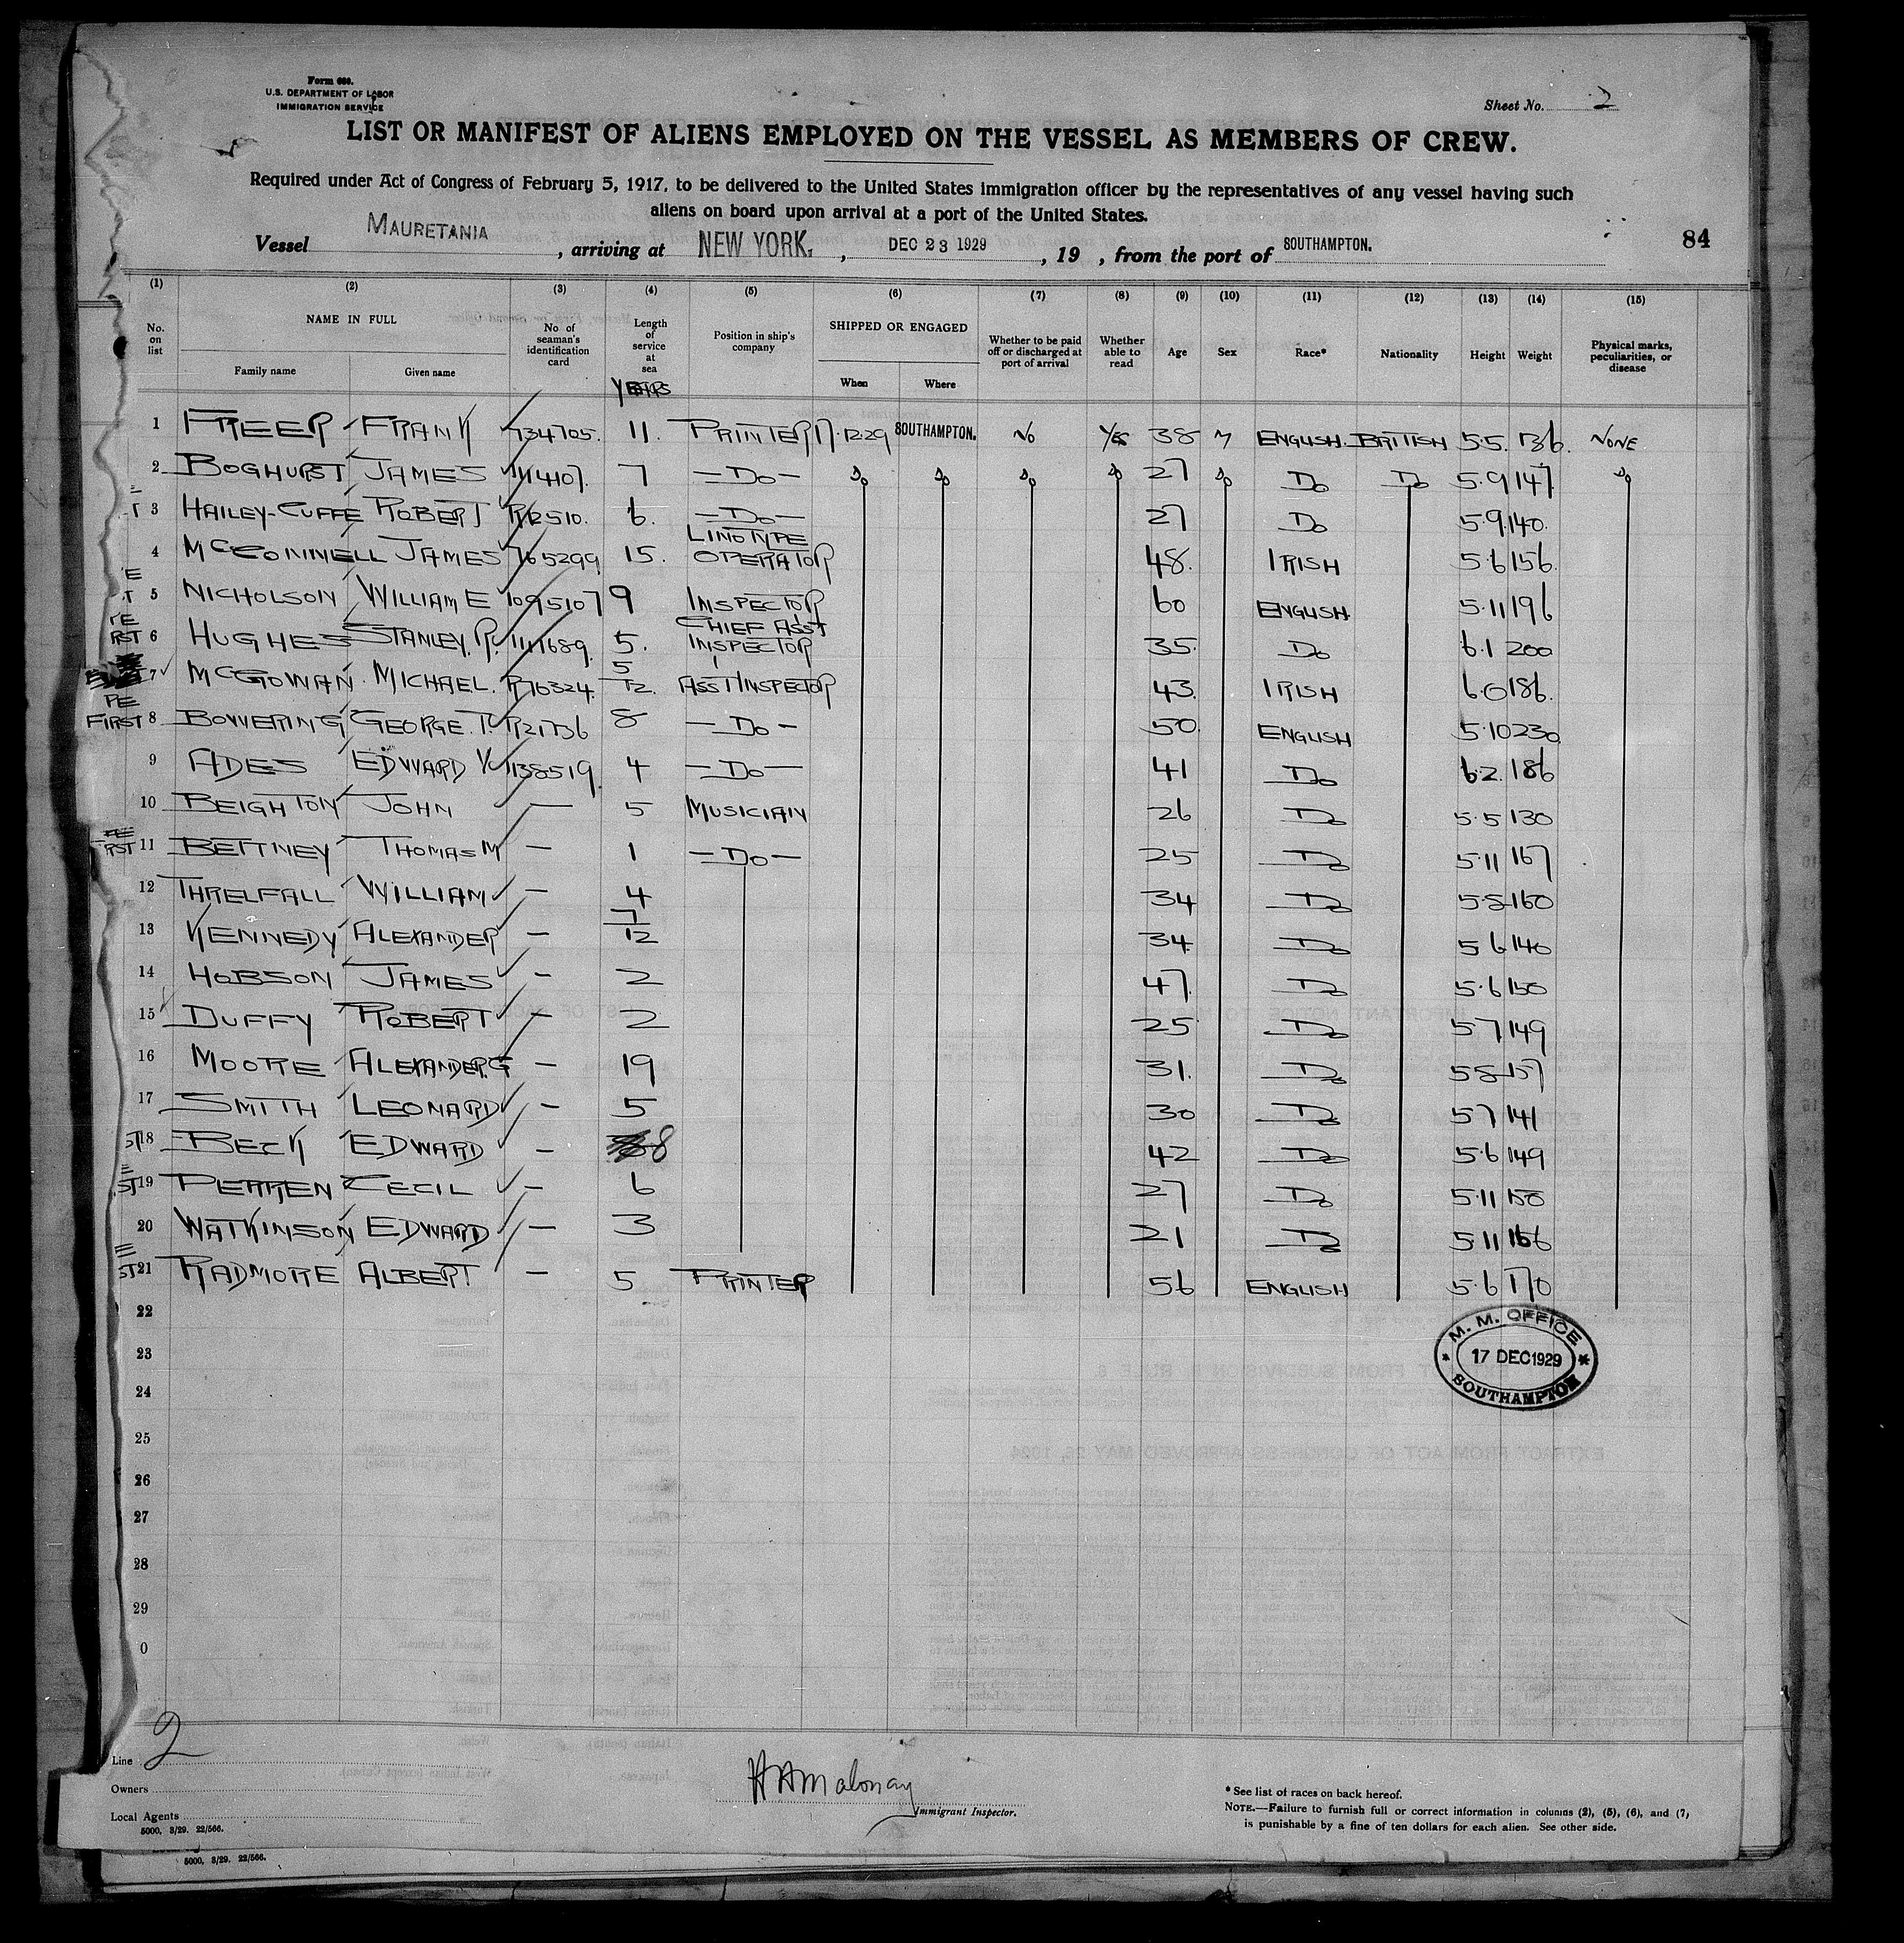 Form 680.
U.S. DEPARTMENT OF LABOR
IMMIGRATION SERVICE
Sheet No. 2
LIST OR MANIFEST OF ALIENS EMPLOYED ON THE VESSEL AS MEMBERS OF CREW.
Required under Act of Congress of February 5, 1917, to be delivered to the United States immigration officer by the representatives of any vessel having such
aliens on board upon arrival at a port of the United States.
Vessel MAURETANIA, arriving at NEW YORK, DEC 23 1929, 19 , from the port of SOUTHAMPTON. 84
(1) (2) (3) (4) (5) (6) (7) (8) (9) (10) (11) (12) (13) (14) (15)
No. on list NAME IN FULL Family name Given name No. of seaman's identification card Length of service at sea YEARS Position in ship's company SHIPPED OR ENGAGED When Where Whether to be paid off or discharged at port of arrival Whether able to read Age Sex Race* Nationality Height Weight Physical marks, peculiarities, or disease
1 FREER FRANK 734705. 11. PRINTER 17.12.29 SOUTHAMPTON. NO YES 38 M ENGLISH. BRITISH 5.5. 136. NONE
2 BOGHURST JAMES 7 — DO — DO DO DO DO 27 DO DO DO 5.9 147. DO
3 HAILEY-CUFFE ROBERT R12510. 6. — DO — 27 DO 5.9 140.
4 MCCONNELL JAMES 765299 15. LINOTYPE OPERATOR 48. IRISH 5.6 156.
5 NICHOLSON WILLIAM E 1095107 9 INSPECTOR 60 ENGLISH 5.11 196
6 HUGHES STANLEY. R. 5. CHIEF ASST INSPECTOR 35. DO 6.1 200
7 MCGOWAN MICHAEL. R76324. 5/12. ASST INSPECTOR 43. IRISH 6.0 186.
FIRST 8 BOWERING GEORGE. T. R21736 8 — DO — 50. ENGLISH 5.10 230
9 ADES EDWARD V. 1138519. 4 — DO — 41 DO 6.2. 186
10 BEIGHTON JOHN — 5 MUSICIAN 26 DO 5.5 130
11 BETTNEY THOMAS M — 1 — DO — 25 DO 5.11 167
12 THRELFALL WILLIAM — 4 34 DO 5.8 160
13 KENNEDY ALEXANDER — 7/12 34 DO 5 6 140
14 HOBSON JAMES — 2 47. DO 5.6 150
15 DUFFY ROBERT — 2 25 DO 5 7 149
16 MOORE ALEXANDER.G — 19 31. DO 5 8 157
17 SMITH LEONARD — 5 30 DO 5 7 141
18 BECK EDWARD — 8 42 DO 5.6 149
19 PERREN CECIL — 6 27 DO 5.11 150
20 WATKINSON EDWARD — 3 21 DO 5.11 166
21 RADMORE ALBERT — 5 PRINTER 56 ENGLISH 5.6 170
22
23
24
25
26
27
28
29
0
M. M. OFFICE
17 DEC 1929
SOUTHAMPTON
Line 2
Owners
Local Agents
5000, 3/29. 22/566.
H A Malonay
Immigrant Inspector.
* See list of races on back hereof.
NOTE.—Failure to furnish full or correct information in columns (2), (5), (6), and (7,
is punishable by a fine of ten dollars for each alien. See other side.
5000, 3/29. 22/566.